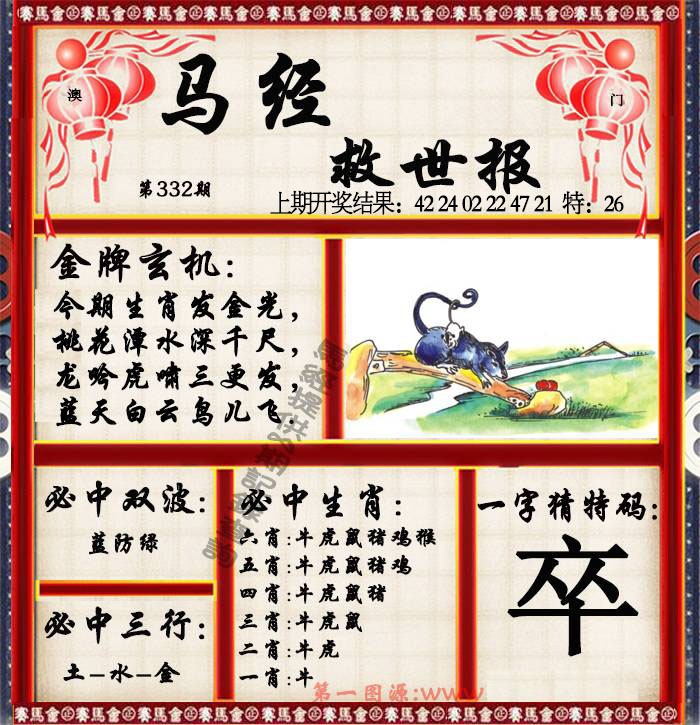 賽馬會正金賽馬會正金賽馬會正金賽馬會正金賽馬會正金賽馬會
澳
门
马经
救世报
第332期
上期开奖结果：42 24 02 22 47 21 特：26
金牌玄机：
今期生肖发金光，
桃花潭水深千尺，
龙吟虎啸三更发，
蓝天白云鸟儿飞.
必中双波：
蓝防绿
必中三行：
土-水-金
必中生肖：
六肖:牛虎鼠猪鸡猴
五肖:牛虎鼠猪鸡
四肖:牛虎鼠猪
三肖:牛虎鼠
二肖:牛虎
一肖:牛
一字猜特码:
卒
第一图源:www